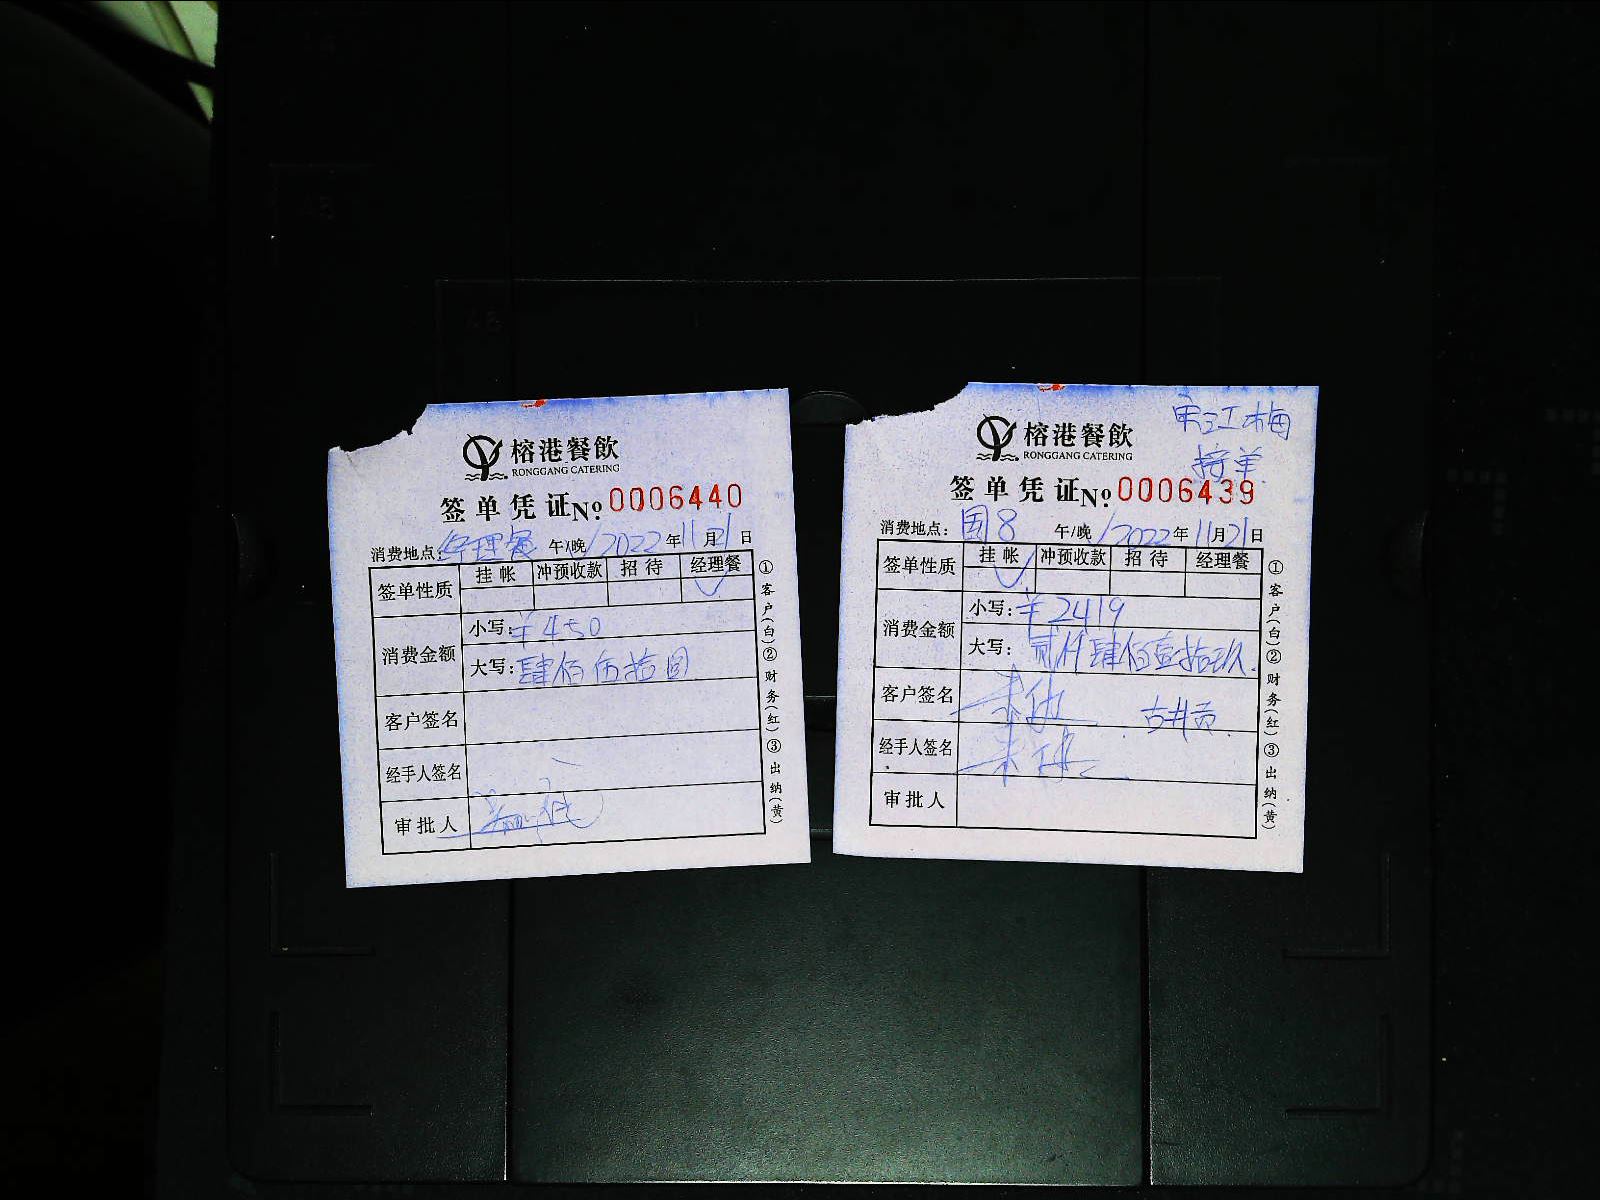 榕港餐飲
RONGGANG CATERING
签单凭证 No. 0006440
消费地点: 经理餐 午/晚 2022年11月21日
签单性质 挂帐 冲预收款 招待 经理餐
消费金额 小写: ¥450
大写: 肆佰伍拾圆
客户签名
经手人签名
审批人
①客户(白)②财务(红)③出纳(黄)
榕港餐飲
RONGGANG CATERING
签单凭证 No. 0006439
消费地点: 国8 午/晚 2022年11月21日
签单性质 挂帐 冲预收款 招待 经理餐
消费金额 小写: ¥2419
大写: 贰仟肆佰壹拾玖
客户签名 古井贡
经手人签名
审批人
①客户(白)②财务(红)③出纳(黄)